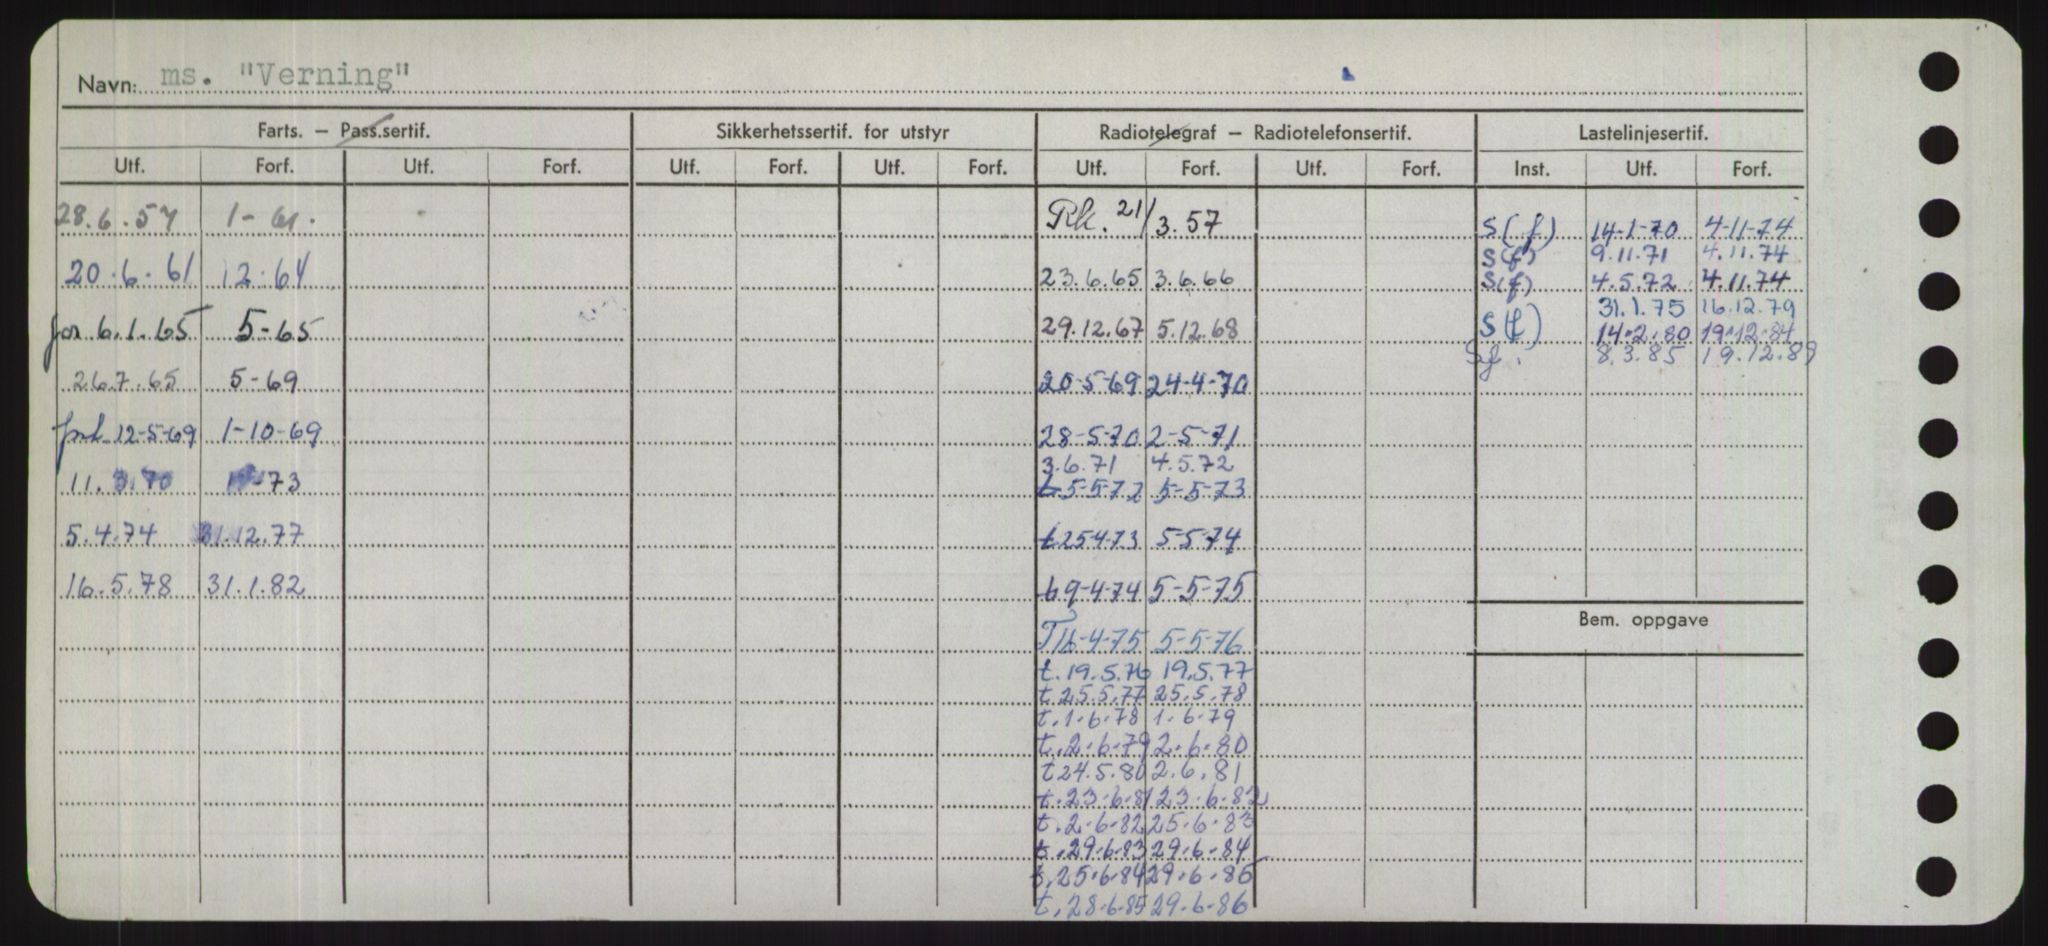 Navn: ms. "Verning"
Farts. – Pass.sertif. Sikkerhetssertif. for utstyr Radiotelegraf – Radiotelefonsertif. Lastelinjesertif.
Utf. Forf. Utf. Forf. Utf. Forf. Utf. Forf. Utf. Forf. Utf. Forf. Inst. Utf. Forf.
28.6.57 1-61.
20.6.61 12.64
for 6.1.65 5-65
26.7.65 5-69
forl 12-5-69 1-10-69
11.3.70 73
5.4.74 31.12.77
16.5.78 31.1.82
21/3.57
23.6.65 3.6.66
29.12.67 5.12.68
20-5-69 24-4-70
28-5-70 2-5-71
3.6.71 4.5.72
t 5-5-72 5-5-73
t 25-4-73 5-5-74
t 9-4-74 5-5-75
T 16-4-75 5-5-76
t. 19.5.76 19.5.77
t. 25.5.77 25.5.78
t. 1.6.78 1.6.79
t. 2.6.79 2.6.80
t 24.5.80 2.6.81
t. 23.6.81 23.6.82
t. 2.6.82 25.6.83
t. 29.6.83 29.6.84
t. 25.6.84 29.6.85
t. 28.6.85 29.6.86
S(f) 14-1-70 4-11-74
S(f) 9.11.71 4.11.74
S(f) 4.5.72 4.11.74
31.1.75 16.12.79
S(f) 14.2.80 19.12.84
Sf. 8.3.85 19.12.89
Bem. oppgave